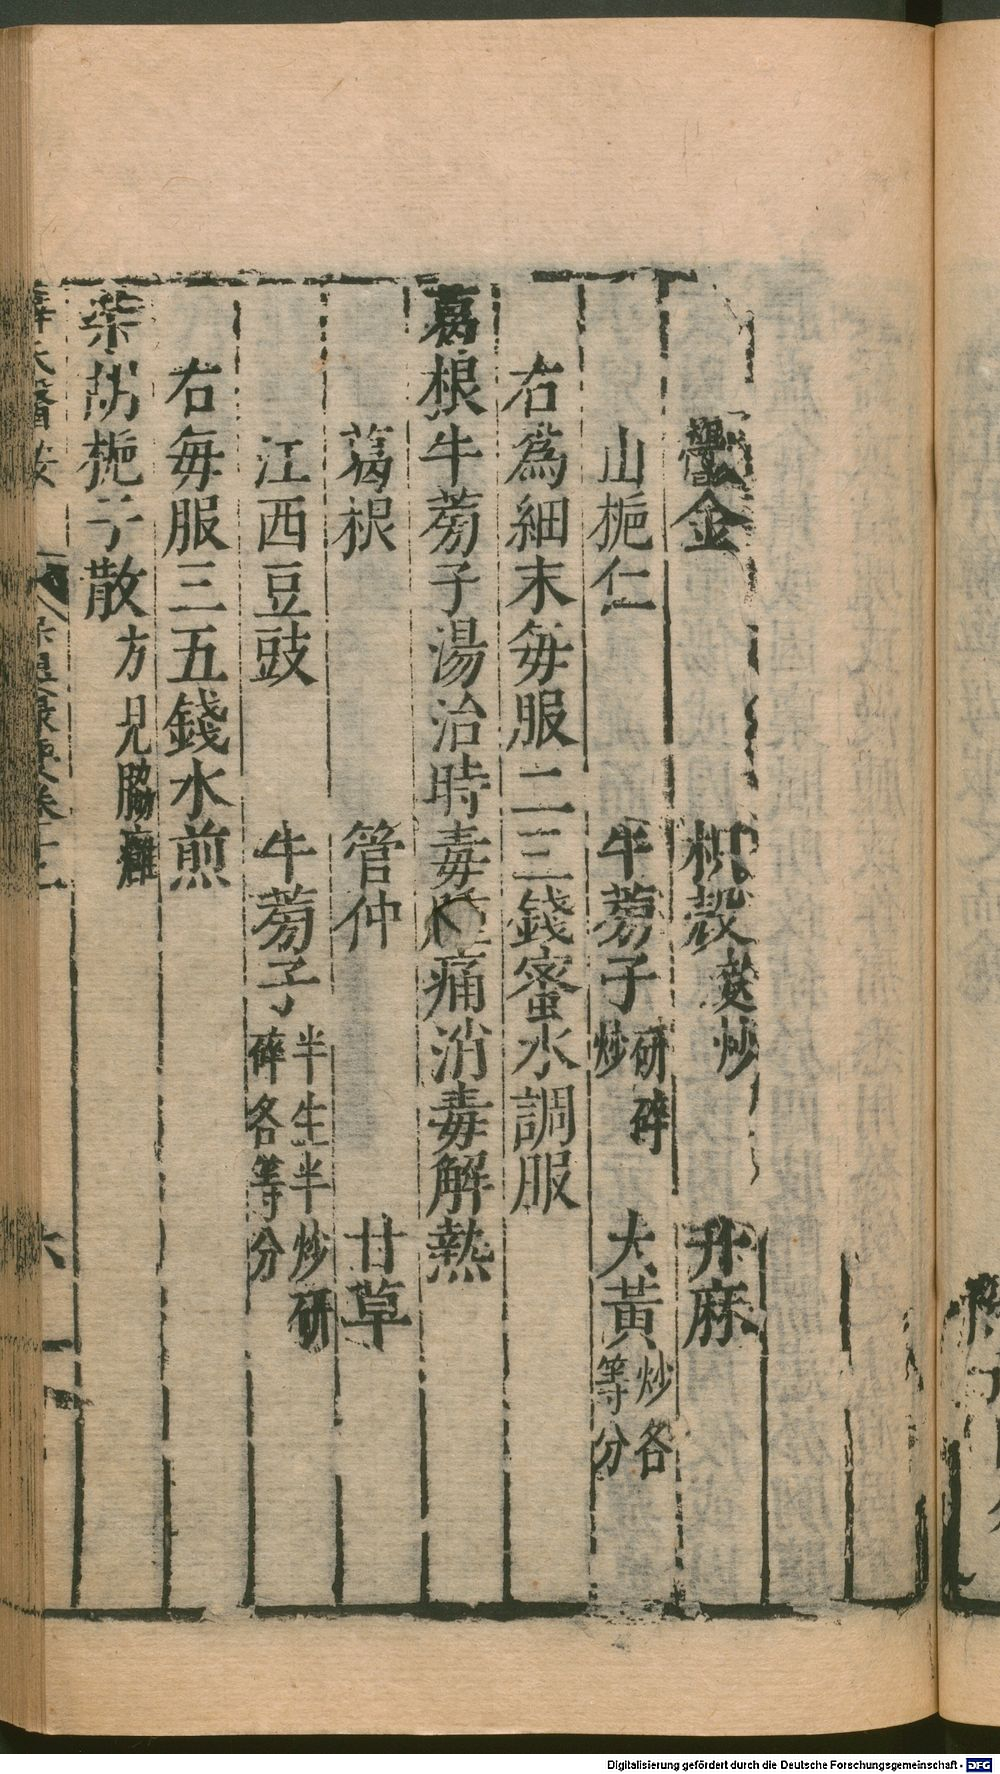 金　枳殼麩炒　升麻
山梔仁　牛蒡子研碎炒　大黃炒各等分
右為細末每服二三錢蜜水調服
葛根牛蒡子湯治時毒　痛消毒解熱
葛根　管仲　甘草
江西豆豉　牛蒡子半生半炒研碎各等分
右每服三五錢水煎
柴胡梔子散方見脇癰
薛氏醫按
卷十二
六
Digitalisierung gefördert durch die Deutsche Forschungsgemeinschaft - DFG